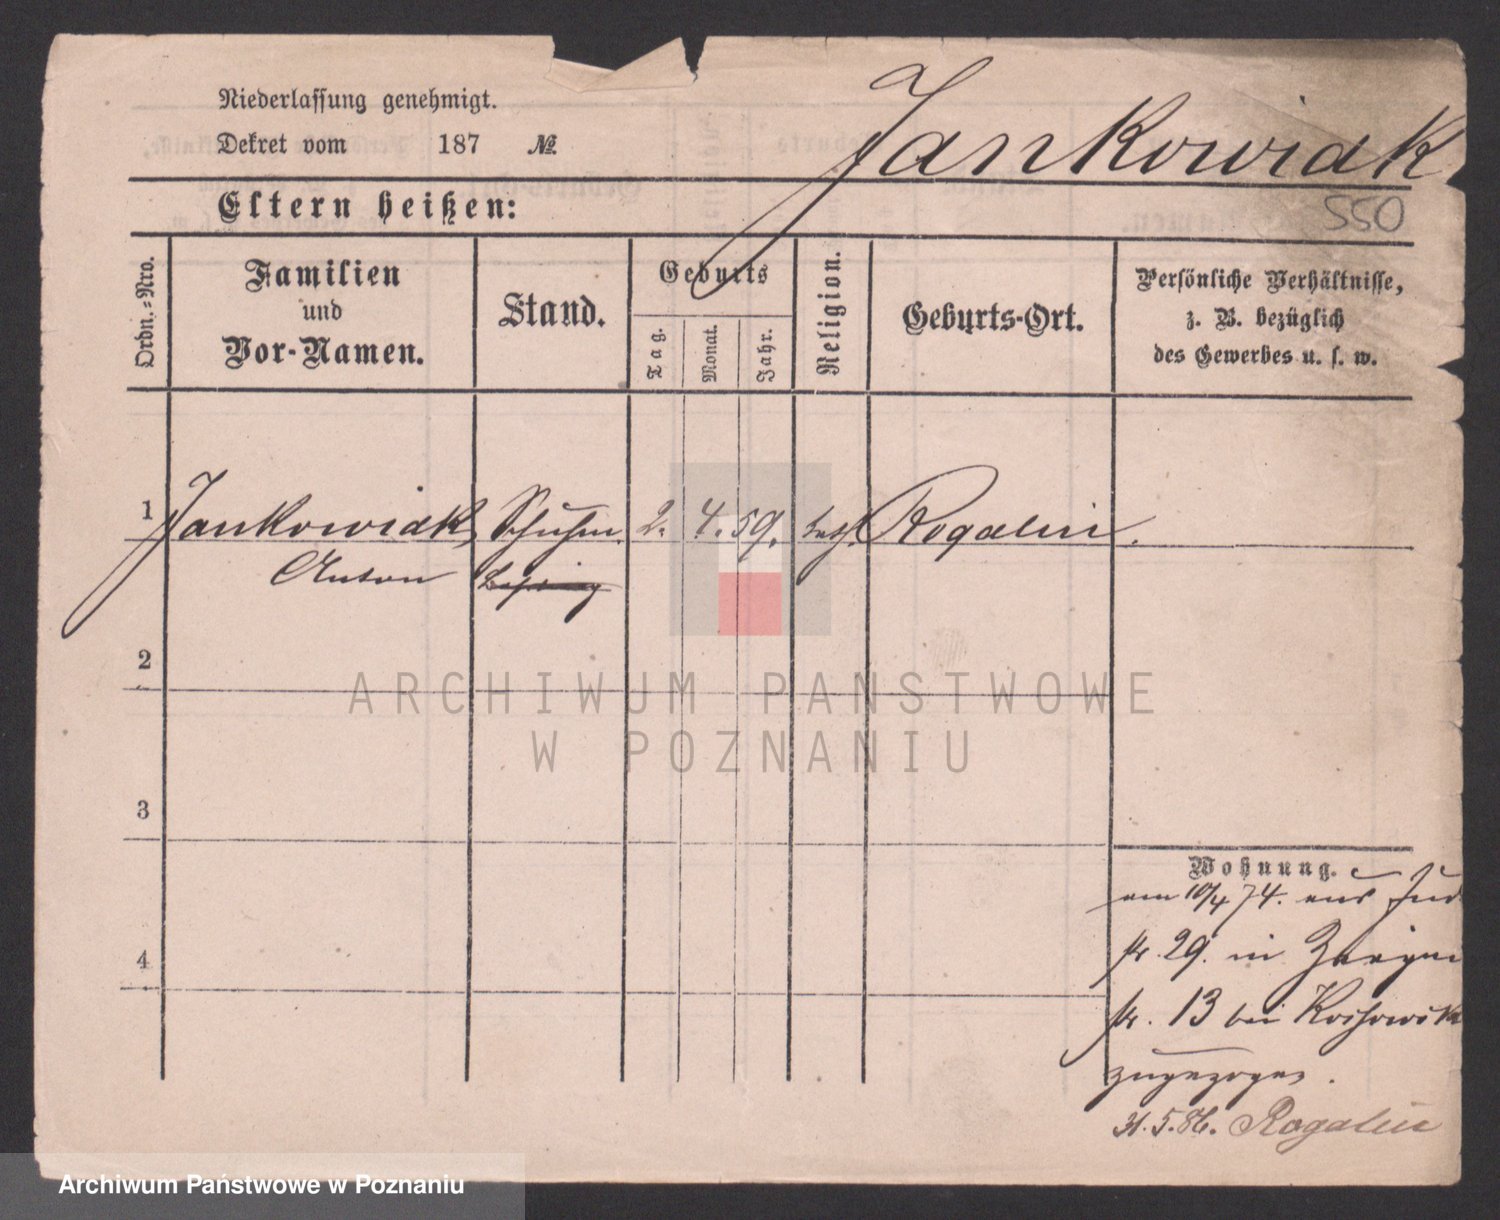 Niederlassung genehmigt.
Dekret vom 187 №
Jankowiak
550
Eltern heißen:
Ordn.-Nro.
Familien
und
Vor-Namen.
Stand.
Geburts
Tag.
Monat.
Jahr.
Religion.
Geburts-Ort.
Persönliche Verhältnisse,
z. B. bezüglich
des Gewerbes u. s. w.
1 Jankowiak, Schuhm. 2. 4. 59. kath. Rogalin.
Anton
2
3
4
Wohnung.
am 10/4 74. aus
str. 29. in
str. 13 bei
zugezogen.
31.5.86. Rogalin
ARCHIWUM PAŃSTWOWE
W POZNANIU
Archiwum Państwowe w Poznaniu